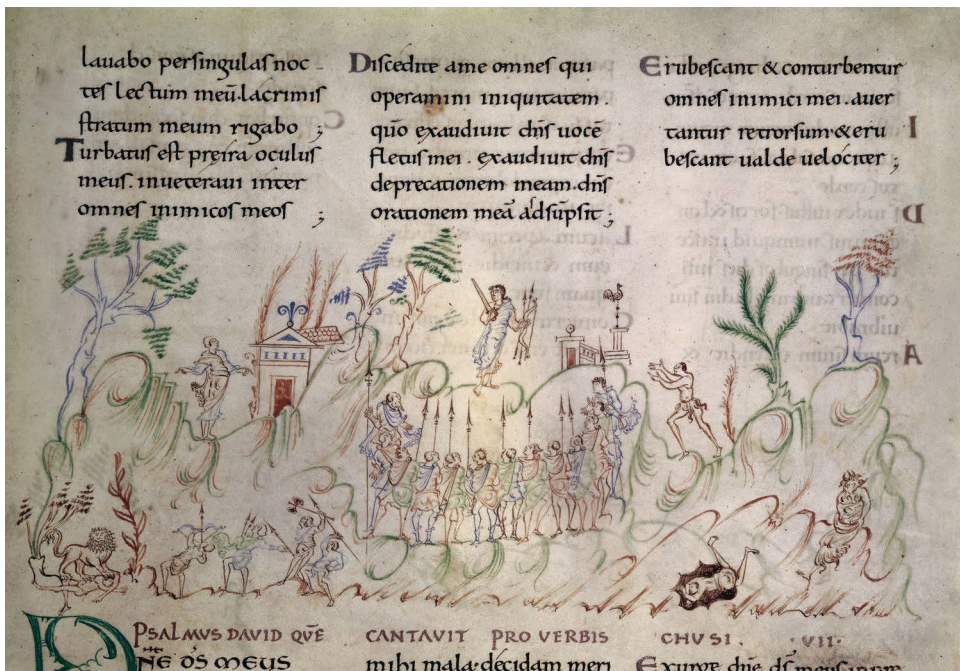 lavabo persingulas noc
tes lectum meū. lacrimis
stratum meum rigabo ;
Turbatus est preira oculus
meus. inueteraui inter
omnes inimicos meos ;
Discedite ame omnes qui
operamini iniquitatem.
quō exaudiuit dn̄s uocē
fletus mei. exaudiuit dn̄s
deprecationem meam. dn̄s
orationem meā adsūpsit ;
Erubescant & conturbentur
omnes inimici mei. auer
tantur retrorsum & eru
bescant ualde uelociter ;
PSALMUS DAVID QUĒ CANTAVIT PRO VERBIS CHUSI. VII.
DNE DS MEUS
mihi mala. decidam meri
Exurge dn̄e